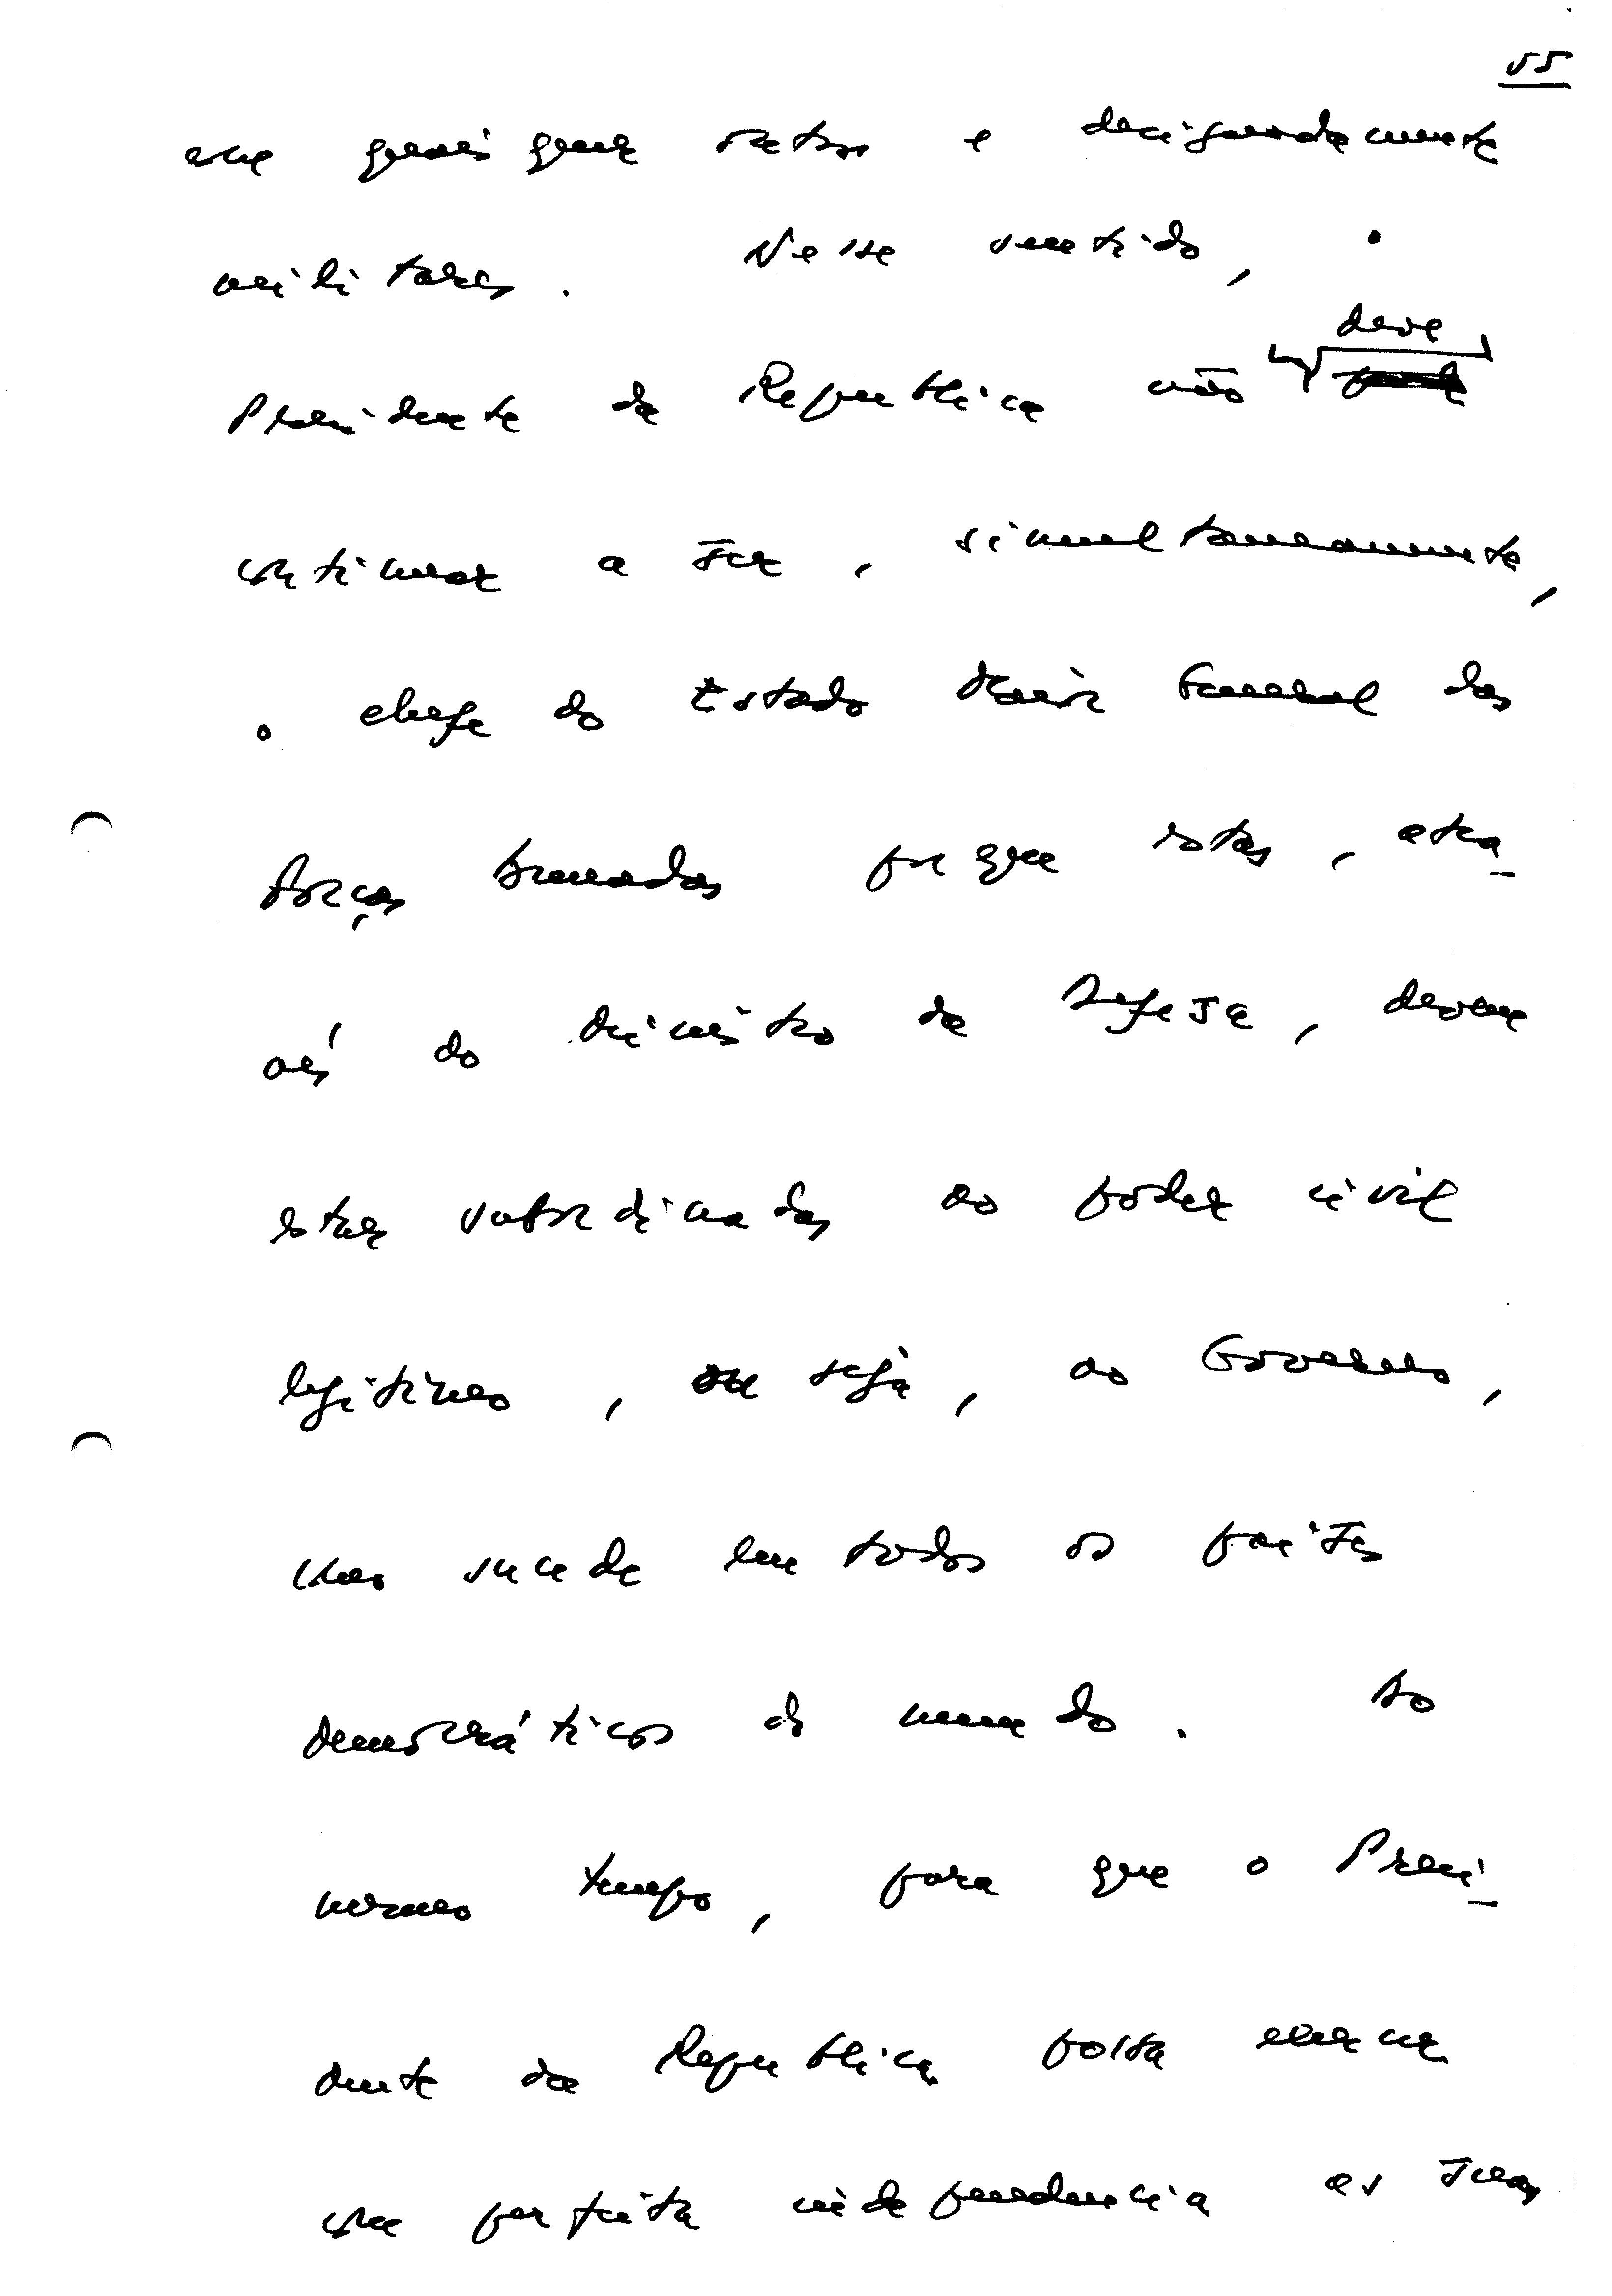 55
com quaisquer outros e designadamente
militares. Nesse sentido, o
deve
Presidente da Republica não
continuar a ser, simultaneamente,
o chefe do Estado Maior General das
Forças Armadas porque estas, atra-
vés do Ministro da Defesa, devem
estar subordinadas ao poder civil
legítimo, ou seja, ao Governo,
como sucede em todos os países
democráticos do mundo. Ao
mesmo tempo, para que o Presi-
dente da Republica possa exercer
com perfeita independencia as suas